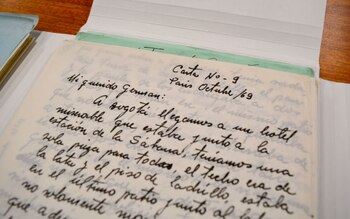 Carta No - 9
París Octubre/69
Mi querido German:
A Bogotá llegamos a un hotel
miserable que estaba junto a la
estación de la Sabana, teníamos una
sola pieza para todas, el techo era de
lata y el piso de ladrillo, estaba
en el último patio junto al
no solamente